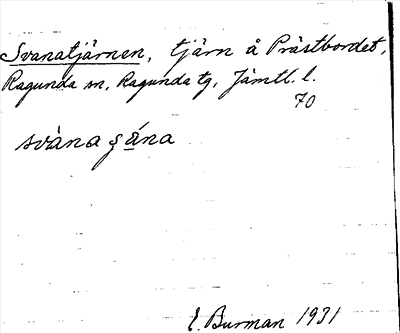 Svanatjärnen, tjärn å Prästbordet,
Ragunda sn, Ragunda tg, Jämtl. l.
70
svànaʂána
E. Burman 1931